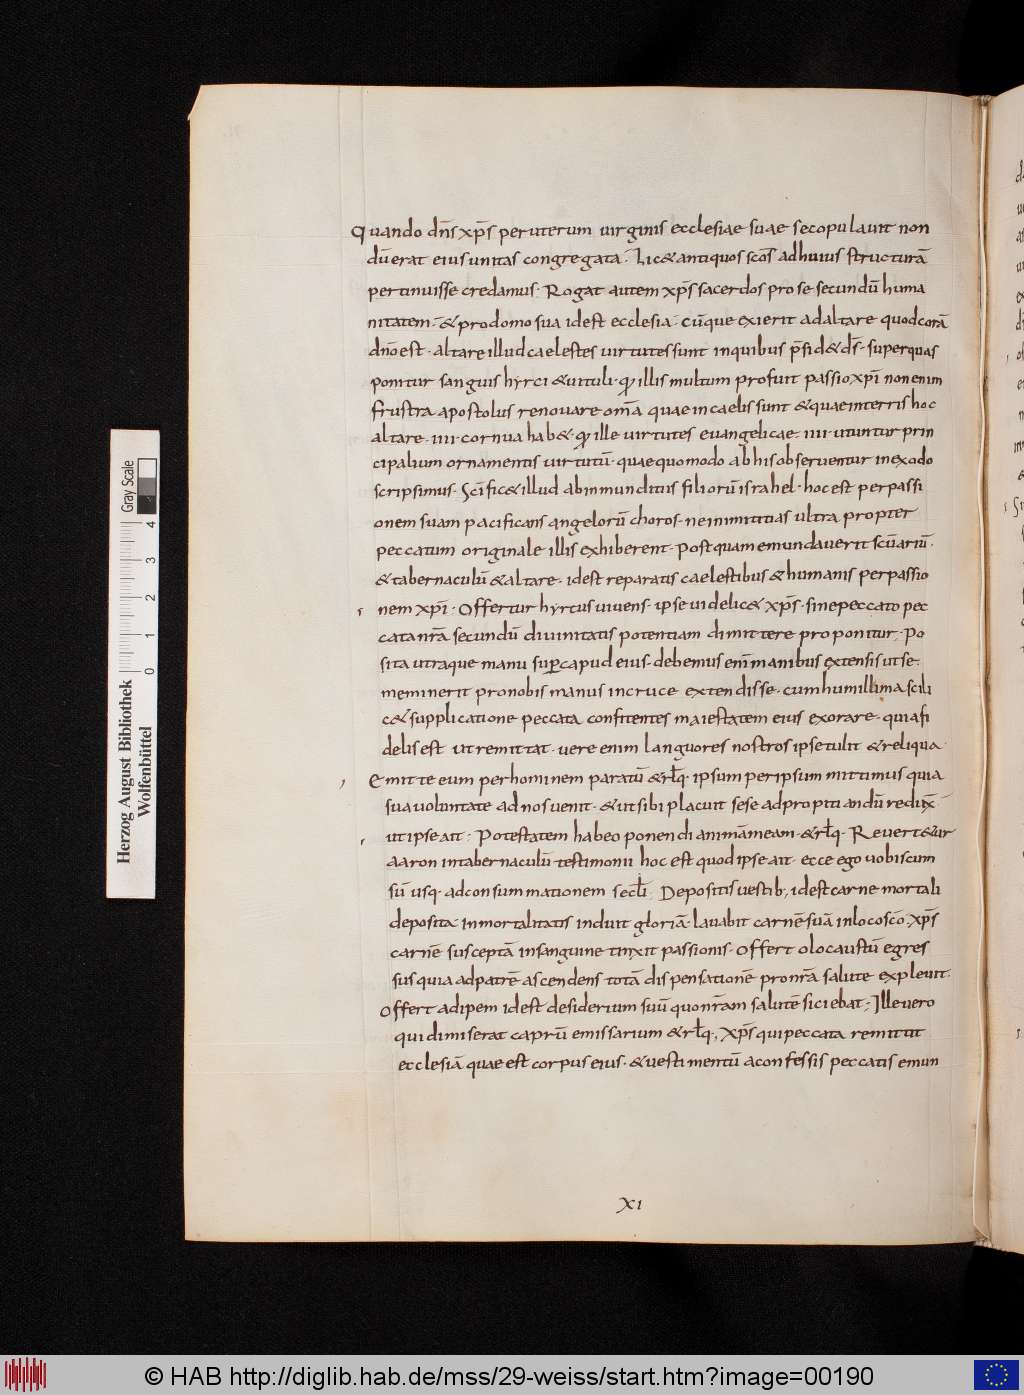 Quando dn̄s xp̄s peruterum uirginis ecclesiae suae secopulauit non
dū erat eius unitas congregata. Lic& antiquos scōs adhuius structurā
pertinuisse credamus. Rogat autem xp̄s sacerdos pro se secundū huma
nitatem. & prodomo sua idest ecclesia. cūque exierit ad altare quod corā
dnō est. altare illud caelestes uirtutes sunt inquibus p̄sid& ds̄. super quas
ponitur sanguis hyrci & uituli. quia illis multum profuit passio xp̄i non enim
frustra apostolus renouare om̄a quae in caelis sunt & quae in terris hoc
altare. IIII. cornua hab&. quia ille uirtutes euangelicae. IIII. utuntur prin
cipalium ornamentis uirtutū. quae quomodo ab his obseruentur in exodo
scripsimus. Sc̄ific& illud ab inmunditiis filiorū israhel. hoc est per passi
onem suam pacificans angelorū choros. ne inimititias ultra propter
peccatum originale illis exhiberent. postquam emundauerit scūariū.
& tabernaculū & altare. idest reparatis caelestibus & humanis per passio
nem xp̄i. Offertur hyrcus uiuens. ipse uidelic& xp̄s. sine peccato pec
cata nr̄a secundū diuinitatis potentiam dimittere proponitur. Po
sita utraque manu sup̱ capud eius. debemus eni̅ manibus extensis ut se
meminerit pro nobis manus in cruce extendisse. cum humillima scili
c& supplicatione peccata confitentes maiestatem eius exorare. quia fi
delis est ut remittat. uere enim languores nostros ipse tulit & reliqua.
Emitte eum per hominem paratū & rl̄q. ipsum per ipsum mittimus quia
sua uoluntate ad nos uenit. & ut sibi placuit sese ad propitiandū redux̄
ut ipse ait: Potestatem habeo ponendi animā meam. & rl̄q. Reuert&ur
aaron in tabernaculū testimonii hoc est quod ipse ait. ecce ego uobiscum
sū usq. ad consummationem secl̄i. Depositis uestib; idest carne mortali
deposita inmortalitatis induit gloriā. lauabit carnē suā in loco scō. xp̄s
carnē susceptā in sanguine tinxit passionis. Offert olocaustū egres
sus quia ad patrē ascendens totā dispensationē pro nr̄a salute expleuit.
Offert adipem idest desiderium suū quo nr̄am salutē siciebat; Ille uero
qui dimiserat caprū emissarium & rl̄q., xp̄s qui peccata remittit
ecclesiā quae est corpus eius. & uestimentū a confessis peccatis emun
XI
Herzog August Bibliothek
Wolfenbüttel
Gray Scale
0 1 2 3 4
© HAB http://diglib.hab.de/mss/29-weiss/start.htm?image=00190